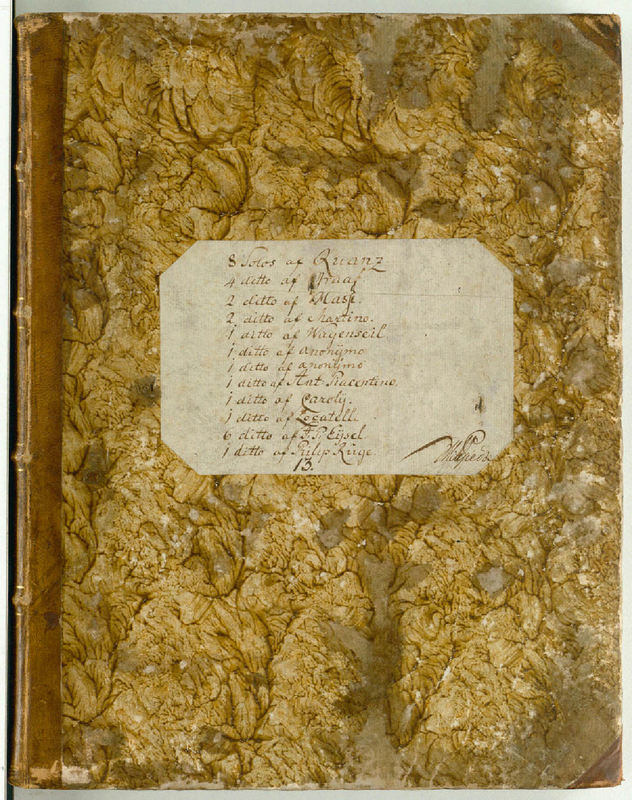 8 Solos af Quanz
4 ditto af Graaf
2 ditto af Mase.
2 ditto af Martino.
1 ditto af Wagenseil
1 ditto af anonijmo
1 ditto af anonijmo
1 ditto af Ant. Piacentino.
1 ditto af Caroly.
1 ditto af Locatell.
6 ditto af J. P. Eijsel.
1 ditto af Philip Ruge.
13.